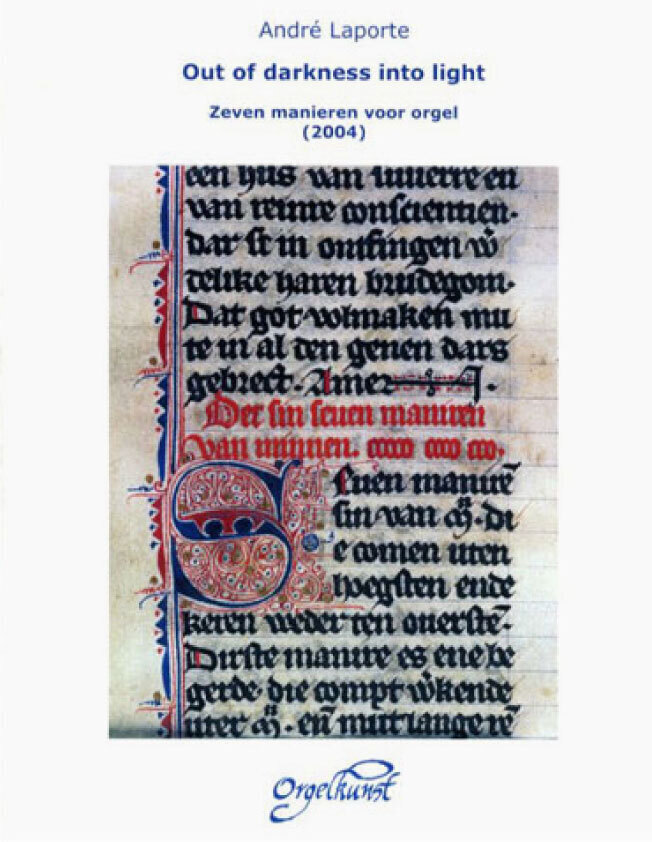 André Laporte
Out of darkness into light
Zeven manieren voor orgel
(2004)
een hus van
van reinre conscientien.
dat si in ontfingen
telike haren brudegom.
Dat got volmaken mu
te in al den genen dars
gebrect. Amen
Det sin seuen maniren
van minnen.
Seuen manirē
sin van m̄. di
e comen uten
hoegsten ende
keren weder ten ouerstē.
Dirste manire es ene be
gerde die compt
uter m̄. eñ mut lange
Orgelkunst